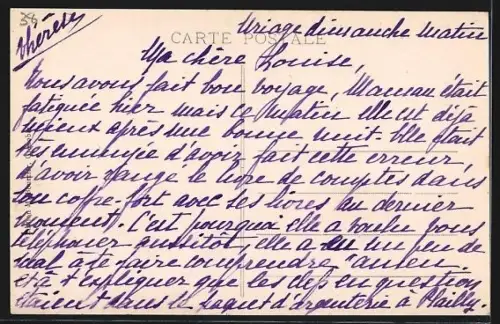 38
Thérèse
Uriage dimanche matin
CARTE POSTALE
Ma chère Louise,
Nous avons fait bon voyage, Maman était
fatiguée hier mais ce matin elle est déjà
mieux après une bonne nuit. Elle était
très ennuyée d'avoir fait cette erreur,
d'avoir rangé le livre de comptes dans
ton coffre-fort avec ses livres au dernier
moment. C'est pourquoi elle a voulu vous
téléphoner aussitôt, elle a eu un peu de
mal à te faire comprendre
expliquer que les clefs en question
étaient dans le paquet d'argenterie à